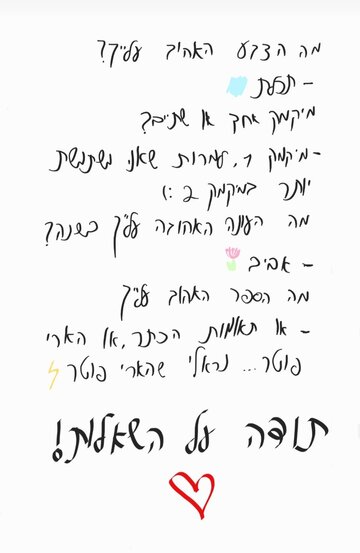 מה הצבע האהוב עלייך?
- תכלת
מיקמק אחד או שתיים?
- מיקמק 1, למרות שאני משתמשת
יותר במיקמק 2 :)
מה העונה האהובה עלייך בשנה?
- אביב
מה הספר האהוב עלייך
- או תאומות הכתר, או הארי
פוטר... נראלי שהארי פוטר
תודה על השאלות!